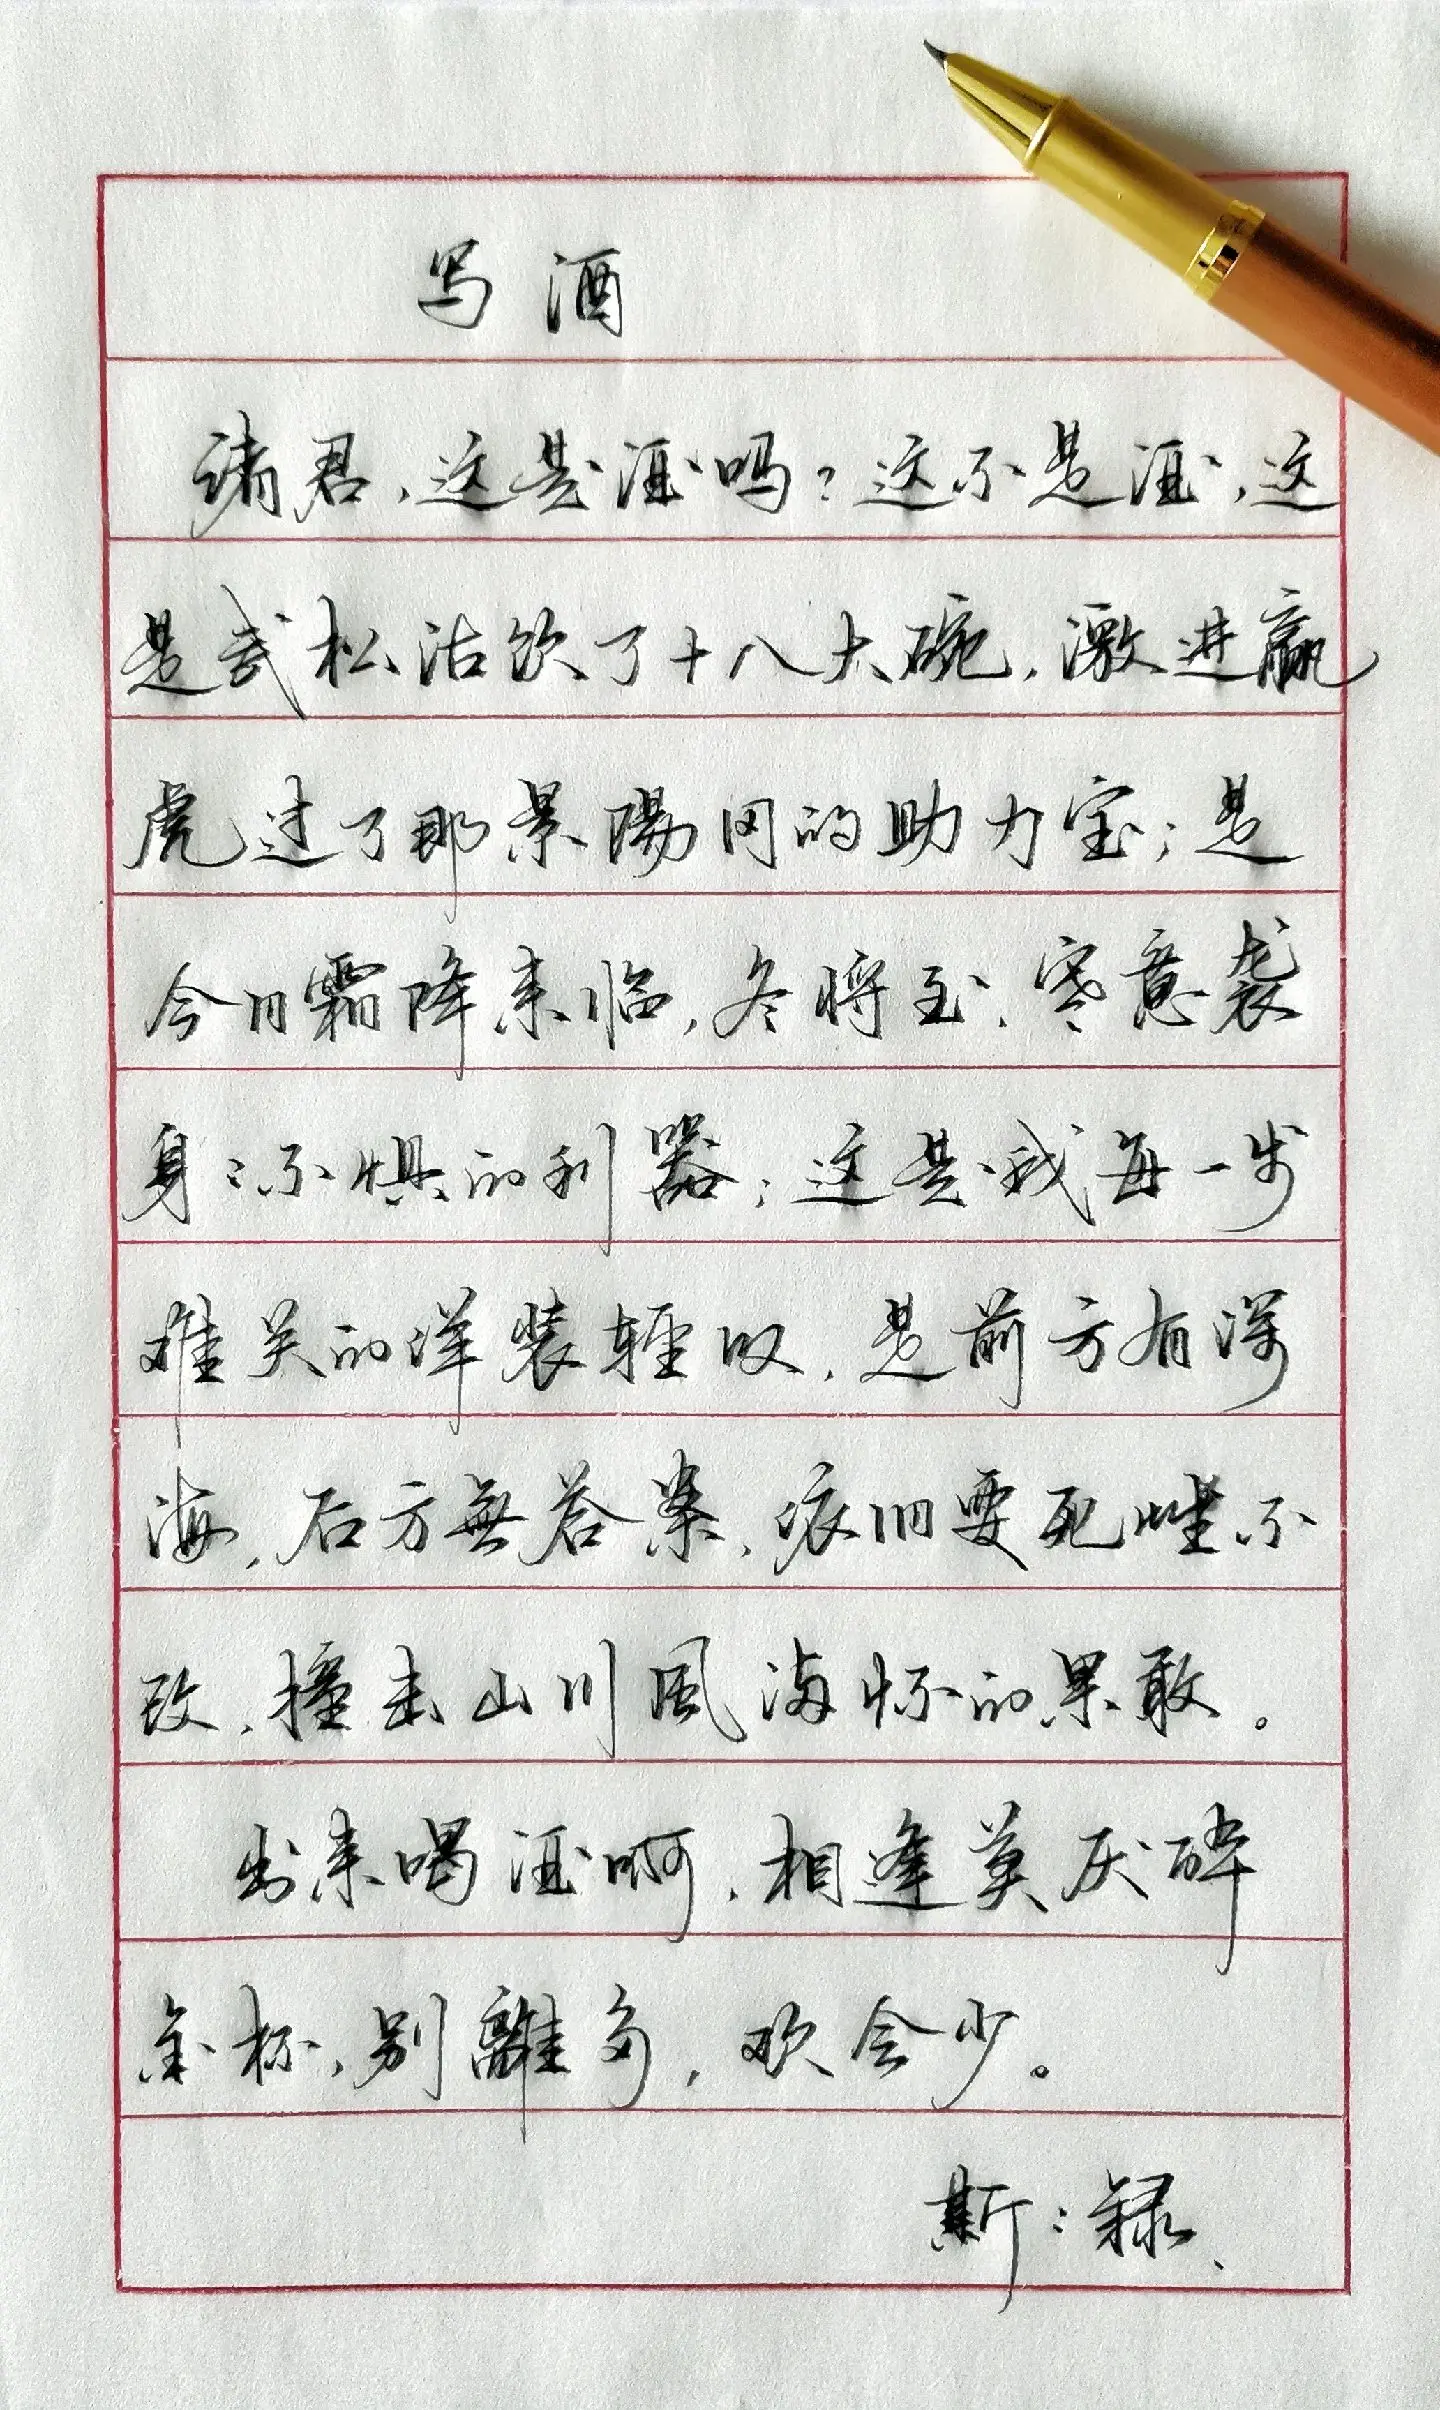 写酒
诸君,这是酒吗?这不是酒,这
是武松沽饮了十八大碗,激进赢
虎过了那景陽冈的助力宝;是
今日霜降来临,冬将至、寒意袭
身:不惧的利器;这是我每一步
难关的洋装轻叹,是前方有深
海,后方無答案,依旧要死性不
改,撞击山川風海怀的果敢。
出来喝酒啊,相逢莫厌醉
金杯,别離多,欢会少。
斯:録、